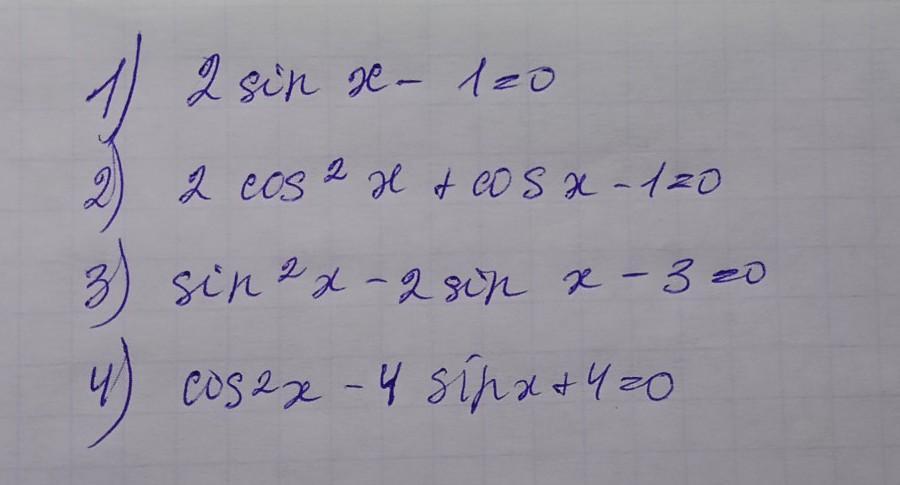 1) 2 sin x - 1 = 0
2) 2 cos² x + cos x - 1 = 0
3) sin² x - 2 sin x - 3 = 0
4) cos²x - 4 sin x + 4 = 0